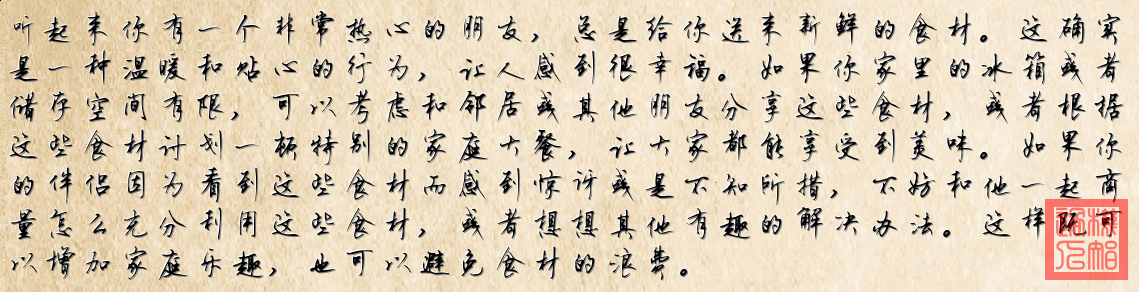 听起来你有一个非常热心的朋友，总是给你送来新鲜的食材。这确实
是一种温暖和贴心的行为，让人感到很幸福。如果你家里的冰箱或者
储存空间有限，可以考虑和邻居或其他朋友分享这些食材，或者根据
这些食材计划一顿特别的家庭大餐，让大家都能享受到美味。如果你
的伴侣因为看到这些食材而感到惊讶或是不知所措，不妨和他一起商
量怎么充分利用这些食材，或者想想其他有趣的解决办法。这样既可
以增加家庭乐趣，也可以避免食材的浪费。